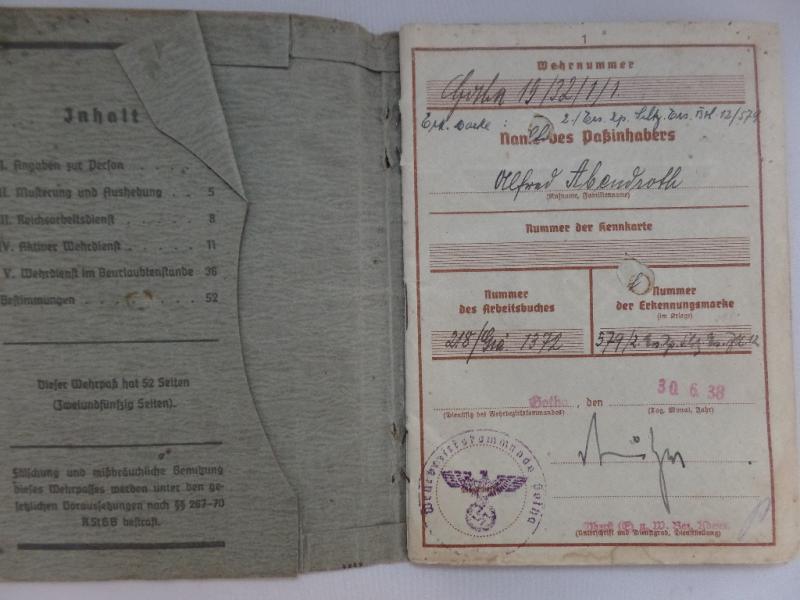 Inhalt
I. Angaben zur Person
II. Musterung und Aushebung . . . 5
III. Reichsarbeitsdienst . . . . 8
IV. Aktiver Wehrdienst . . . . 11
V. Wehrdienst im Beurlaubtenstande 36
Bestimmungen . . . . . 52
Dieser Wehrpaß hat 52 Seiten
(Zweiundfünfzig Seiten).
Fälschung und mißbräuchliche Benutzung
dieses Wehrpasses werden unter den ge-
setzlichen Voraussetzungen nach §§ 267-70
RStGB bestraft.
1
Wehrnummer
Gotha 19/32/1/1
Name des Paßinhabers
Alfred Abendroth
(Rufname, Familienname)
Nummer der Kennkarte
Nummer
des Arbeitsbuches
218/ 1372
Nummer
der Erkennungsmarke
(im Kriege)
Gotha, den 30. 6. 38
(Dienstsitz des Wehrbezirkskommandos)
(Tag, Monat, Jahr)
Wehrbezirkskommando Gotha
(Unterschrift und Dienstgrad, Dienststellung)